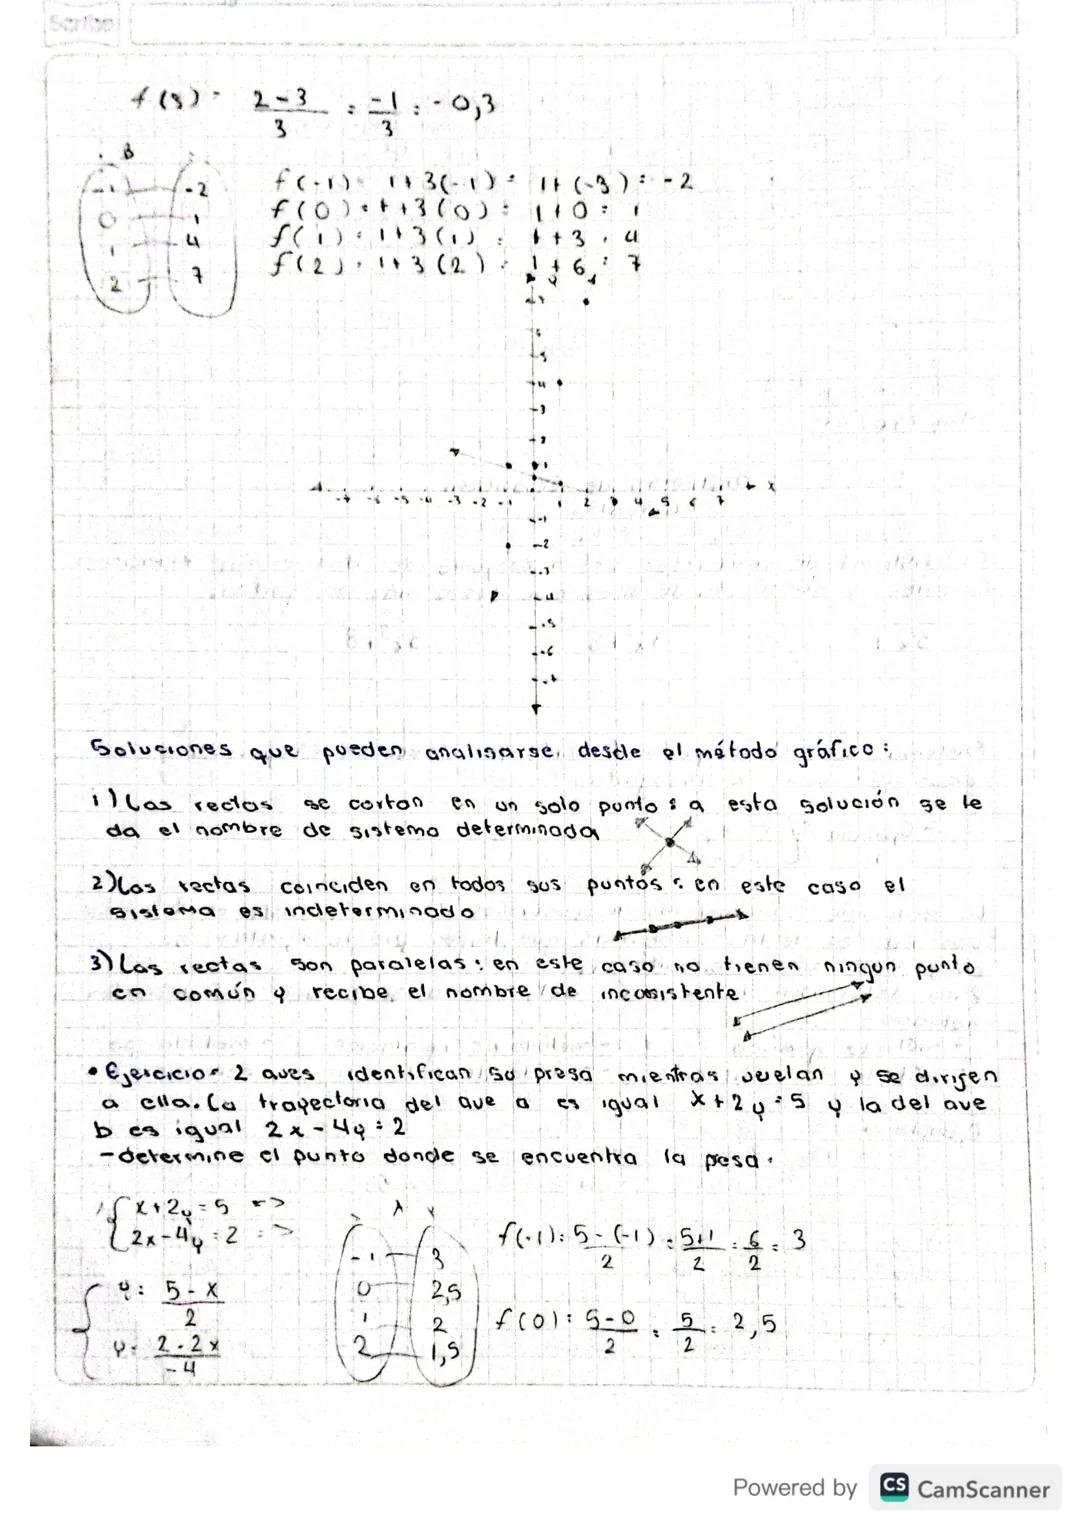 Scribe
f(3) = 2-3/3 = -1/3 = -0,3
B
-1 -2 f(-1) = 1+3(-1) = 1+(-3) = -2
0 1 f(0) = 1+3(0) = 1+0 = 1
1 4 f(1) = 1+3(1) = 1+3 = 4
2 7 f(2) = 1+3(2) = 1+6 = 7
Soluciones que pueden analisarse desde el método gráfico:
1) Las rectas se cortan en un solo punto: a esta solución se le
da el nombre de sistema determinada
2) Las rectas coinciden en todos sus puntos: en este caso el
sistema es indeterminado
3) Las rectas son paralelas: en este caso no tienen ningun punto
en común y recibe el nombre de inconsistente
• Ejercicio- 2 aves identifican su presa mientras vuelan y se dirigen
a ella. La trayectoria del ave a es igual x+2y=5 y la del ave
b es igual 2x-4y=2
-determine el punto donde se encuentra la presa.
{x+2y=5 =>
{2x-4y=2 =>
y = 5-x/2
y = 2-2x/-4
-1 3
0 2,5
1 2
2 1,5
f(-1) = 5-(-1)/2 = 5+1/2 = 6/2 = 3
f(0) = 5-0/2 = 5/2 = 2,5
Powered by CS CamScanner